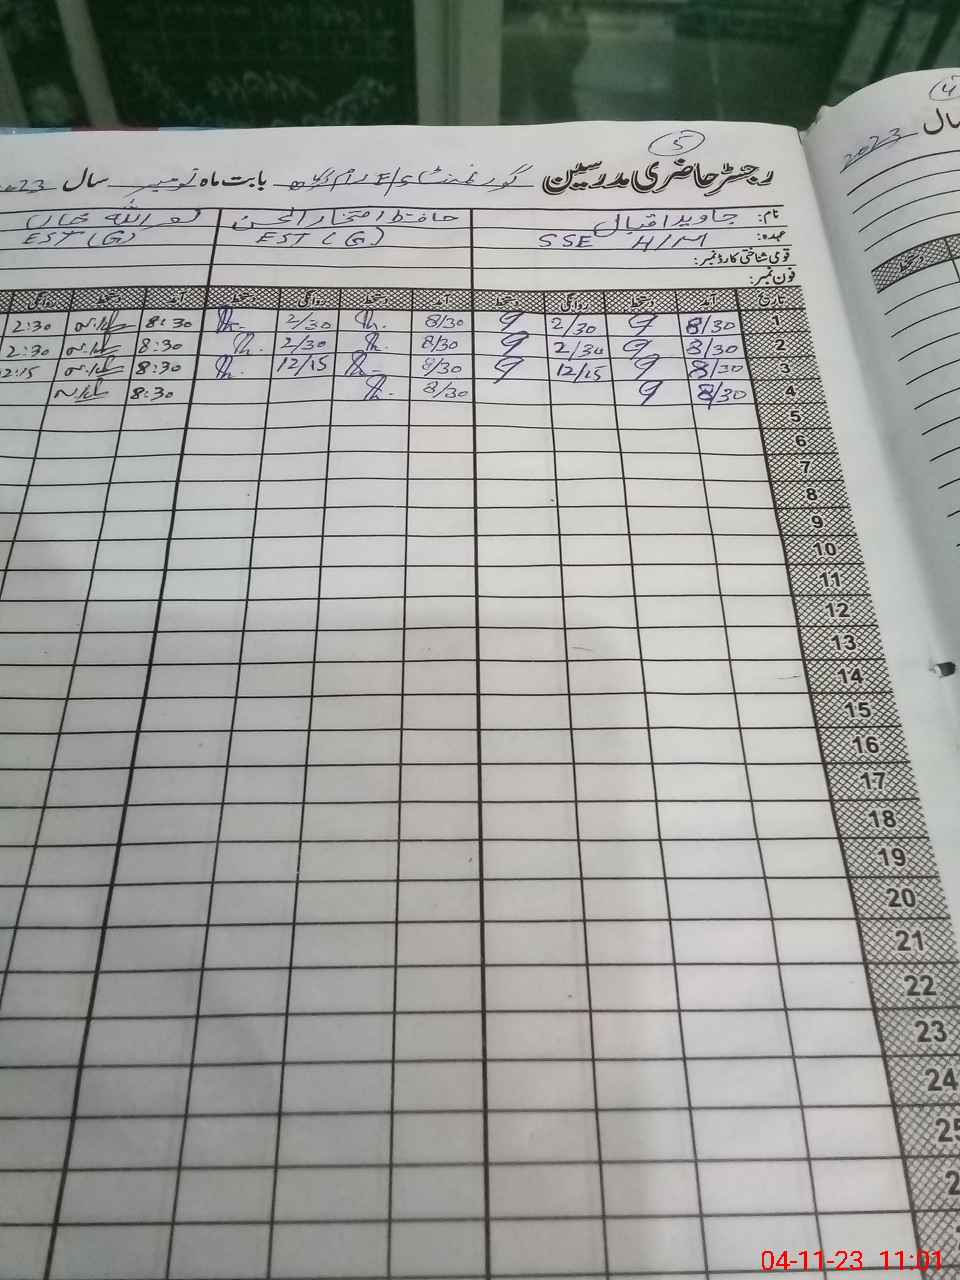 5
رجسٹر حاضری مدرسین گورنمنٹ E/S بابت ماہ نومبر سال 2023
نام: جاوید اقبال حافظ افتخار الحسن نصر اللہ خاں
عہدہ: SSE H/M EST (G) EST (G)
قومی شناختی کارڈ نمبر:
فون نمبر:
تاریخ آمد دستخط روانگی دستخط آمد دستخط روانگی دستخط آمد دستخط روانگی
1 8/30 2/30 8/30 2/30 8:30 2:30
2 8/30 2/30 8/30 2/30 8:30 2:30
3 8/30 12/15 8/30 12/15 8:30 12:15
4 8/30 8/30 8:30
5
6
7
8
9
10
11
12
13
14
15
16
17
18
19
20
21
22
23
24
25
4
سال 2023
دستخط
04-11-23 11:01